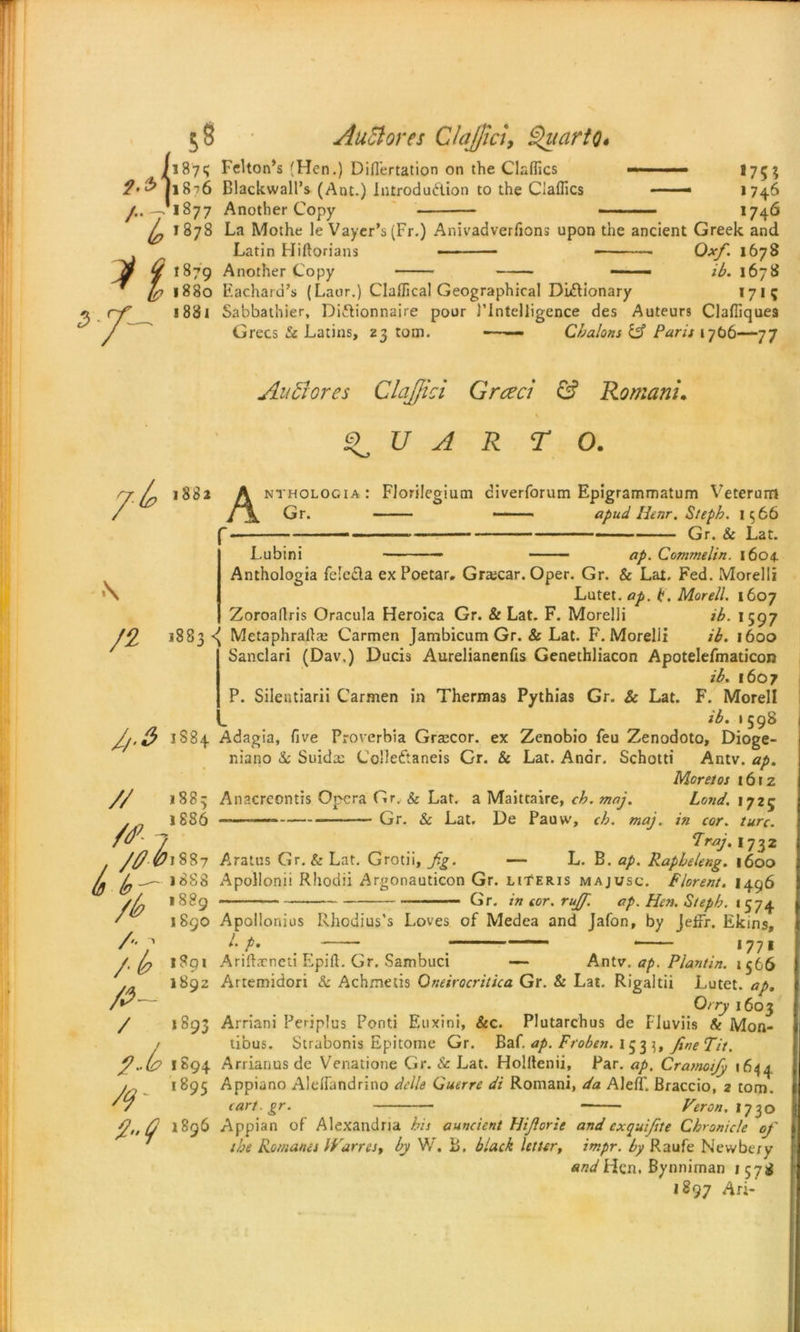 58 Auctores Claſſici, Quarto.
1875 Felton's (Hen.) Diſſertation on the Claſſics —— 1753
2.3 1876 Blackwall's (Ant.) Introduction to the Claſſics —— 1746
1.. — 1877 Another Copy —— —— 1746
6 1878 La Mothe le Vayer's (Fr.) Anivadverſions upon the ancient Greek and
Latin Hiſtorians —— —— Oxf. 1678
1879 Another Copy —— —— —— ib. 1678
1880 Eachard's (Laur.) Claſſical Geographical Dictionary 1715
3.7— 1881 Sabbathier, Dictionnaire pour l'Intelligence des Auteurs Claſſiques
Grecs & Latins, 23 tom. —— Chalons & Paris 1766—77
Auctores Claſſici Græci & Romani.
QUARTO.
7.6 1882 ANTHOLOGIA: Florilegium diverſorum Epigrammatum Veterum
Gr. —— —— apud Henr. Steph. 1566
—— —— —— Gr. & Lat.
Lubini —— —— ap. Commelin. 1604
Anthologia ſelecta ex Poetar. Græcar. Oper. Gr. & Lat. Fed. Morelli
Lutet. ap. F. Morell. 1607
Zoroaſtris Oracula Heroica Gr. & Lat. F. Morelli ib. 1597
12 1883 Metaphraſtæ Carmen Jambicum Gr. & Lat. F. Morelli ib. 1600
Sanclari (Dav.) Ducis Aurelianenſis Genethliacon Apoteleſmaticon
ib. 1607
P. Silentiarii Carmen in Thermas Pythias Gr. & Lat. F. Morell
ib. 1598
4.3 1884 Adagia, ſive Proverbia Græcor. ex Zenobio ſeu Zenodoto, Dioge-
niano & Suidæ Collectaneis Gr. & Lat. Andr. Schotti Antv. ap.
Moretos 1612
11 1885 Anacreontis Opera Gr. & Lat. a Maittaire, ch. maj. Lond. 1725
1886 —— —— Gr. & Lat. De Pauw, ch. maj. in cor. turc.
Traj. 1732
1887 Aratus Gr. & Lat. Grotii, fig. — L. B. ap. Rapheleng. 1600
1888 Apollonii Rhodii Argonauticon Gr. LITERIS MAJUSC. Florent. 1496
1889 —— —— —— Gr. in cor. ruſſ. ap. Hen. Steph. 1574
1890 Apollonius Rhodius's Loves of Medea and Jaſon, by Jeffr. Ekins,
l. p. —— —— —— 1771
1.6 1891 Ariſtæneti Epiſt. Gr. Sambuci — Antv. ap. Plantin. 1566
1892 Artemidori & Achmetis Oneirocritica Gr. & Lat. Rigaltii Lutet. ap.
Orry 1603
1 1893 Arriani Periplus Ponti Euxini, &c. Plutarchus de Fluviis & Mon-
tibus. Strabonis Epitome Gr. Baſ. ap. Froben. 1533, ſine Tit.
2..6 1894 Arrianus de Venatione Gr. & Lat. Holſtenii, Par. ap. Cramoiſy 1644
19 - 1895 Appiano Aleſſandrino delle Guerre di Romani, da Aleſſ. Braccio, 2 tom.
cart. gr. —— —— Veron. 1730
2..9 1896 Appian of Alexandria his auncient Hiſtorie and exquiſite Chronicle of
the Romanes Warres, by W. B. black letter, impr. by Raufe Newbery
and Hen. Bynniman 1578
1897 Ari-